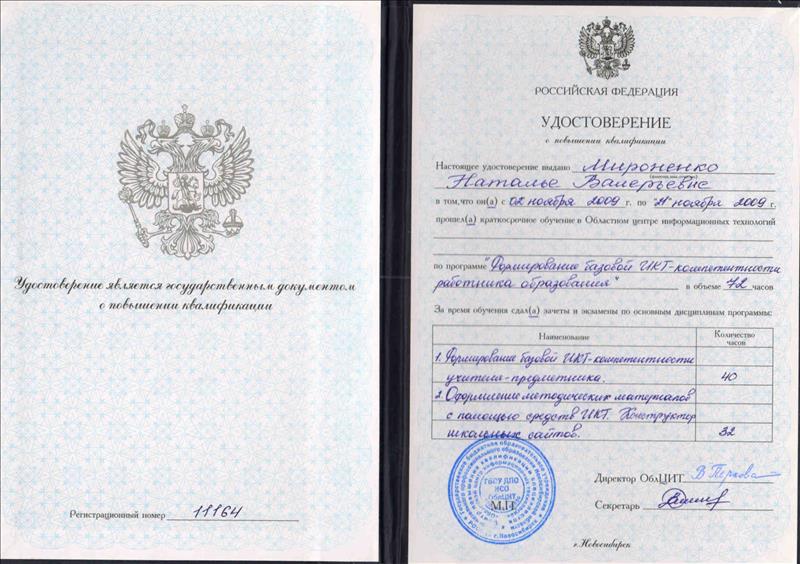 Удостоверение является государственным документом
о повышении квалификации
Регистрационный номер 11164
РОССИЙСКАЯ ФЕДЕРАЦИЯ
УДОСТОВЕРЕНИЕ
о повышении квалификации
Настоящее удостоверение выдано Мироненко
Наталье Валерьевне
в том, что он(а) с 02 ноября 2009 г. по "21" ноября 2009 г.
прошел(а) краткосрочное обучение в Областном центре информационных технологий
по программе "Формирование базовой ИКТ-компетентности
работника образования" в объеме 72 часов
За время обучения сдал(а) зачеты и экзамены по основным дисциплинам программы:
Наименование Количество часов
1. Формирование базовой ИКТ-компетентности
учителя-предметника. 40
2. Оформление методических материалов
с помощью средств ИКТ. Конструктор
школьных сайтов. 32
ГБОУ ДПО
НСО
ОблЦИТ
М.П
г. Новосибирск
Директор ОблЦИТ
Секретарь
г.Новосибирск